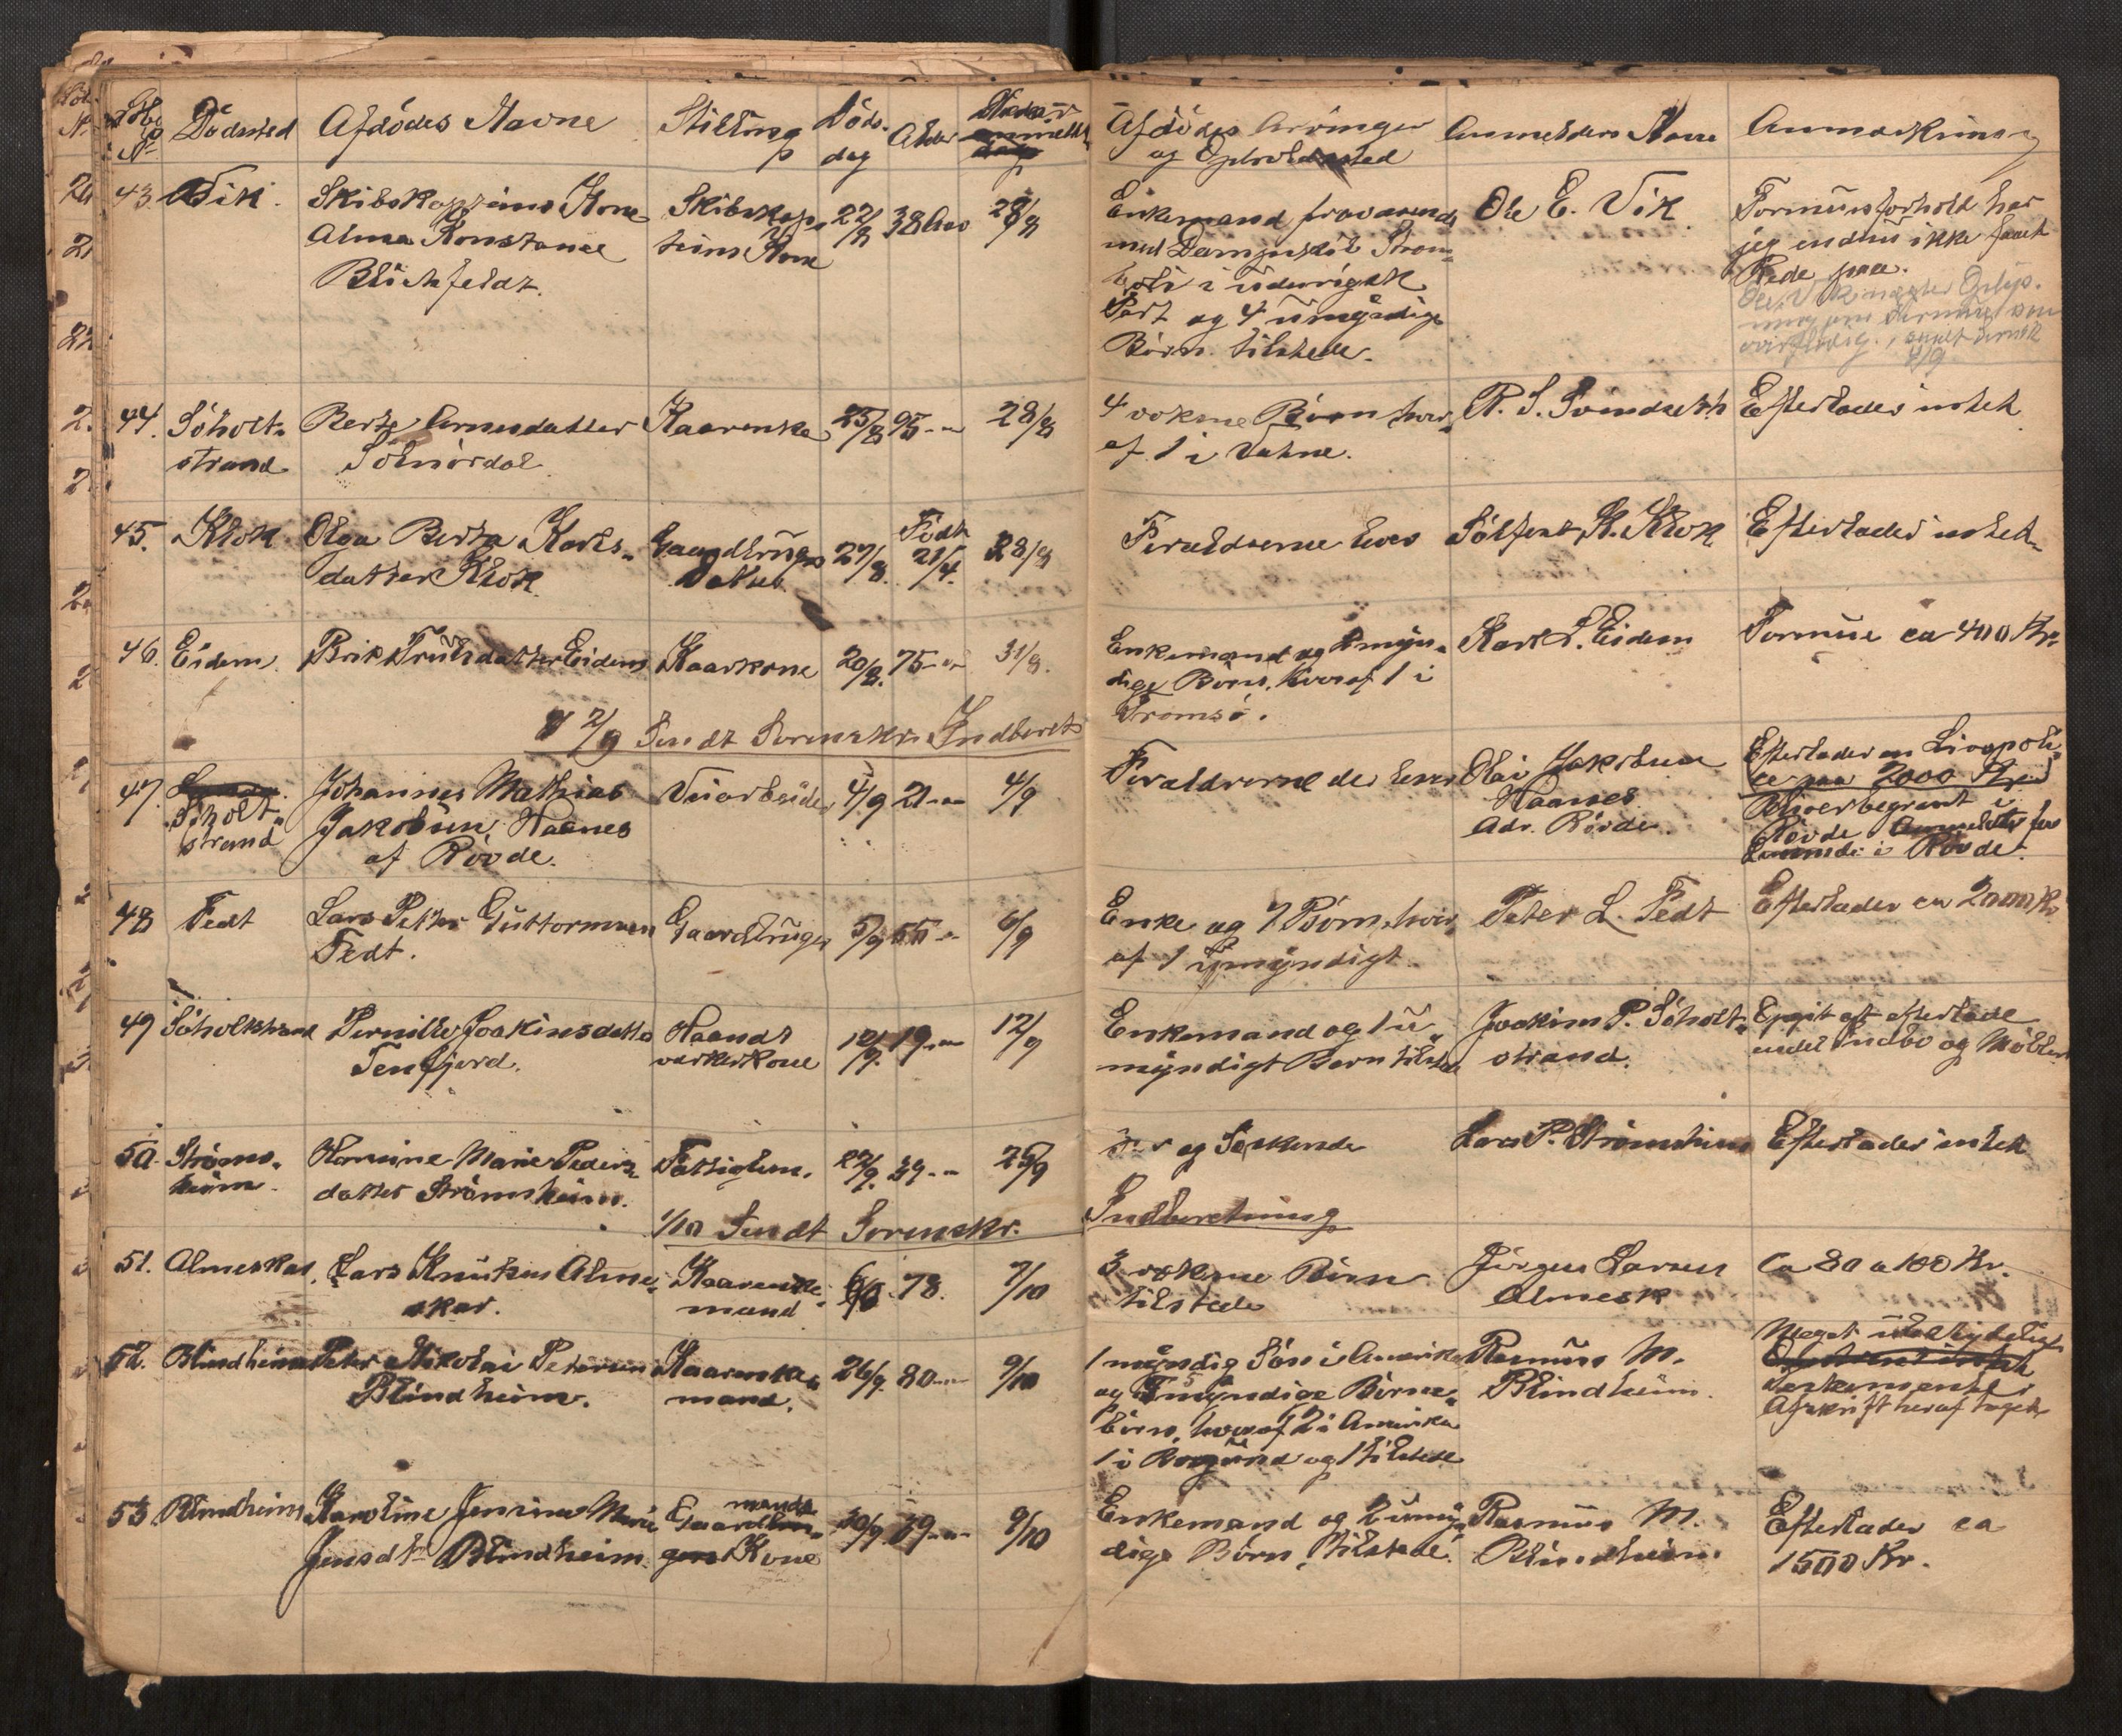 Löbe No
Dödssted
Afdödes Navne
Stilling
Döds-
dag
Alder
Afdödes Arvinger
og Opholdssted
Anmelders Navn
Anmærkning
43.
Vik.
Skibskapteins Kone
Alma Konstanse
Blichfeldt.
Skibskap-
teins Kone
22/8
38 Aar
28/8
Enkemand fraværende
med Dampskib Strom-
boli i udenrigsk
Fart og 4 umyndige
Börn tilstede.
Ole E. Vik
Formuesforhold har
jeg endnu ikke faaet
Rede paa.
44.
Söholt-
strand
Berte Arnesdatter
Solnördal
Kaarenke
25/8
95 - "
28/8
4 voksne Börn hvor-
af 1 i Vatne.
R. S. Svindseth
Efterlader intet
45.
Klok
Olga Berta Karls-
datter Klok
Gaardbrugers
Datter
27/8.
Födt
21/4.
28/8
Foraldrerne lever
Sölfest K. Klok
Efterlader intet
46.
Eidem.
Brit Trulsdatter Eidem
Kaarkone
20/8.
75 - "
31/8.
Enkemand og myn-
dige Börn, hvoraf 1 i
Tromsö.
Karl L. Eidem
Formue ca 400 Kr.
2/9 Sendt Sorenskr. Indberet
47.
Söholt-
strand
Johannes Mathias
Jakobsen, Haanes
af Rövde.
Veiarbeider
4/9
21 - "
4/9
Foraldrerne der lever
Olai Jakobsen
Haanes
Adr. Rövde.
Efterlader en Livspoli-
ce paa 2000 Kr.
Bliver begravet i
Rövde
Lensmd. i Rövde.
48
Fedt
Lars Petter Guttormsen
Fedt.
Gaardbruger
5/9
55 - "
6/9
Enke og 7 Börn, hvor-
af 1 umyndigt
Peter L. Fedt
Efterlader ca 2000 Kr.
49
Söholtstrand
Pernille Joakimsdatter
Tenfjord.
Haandt
værkerkone
12/9.
19 - "
12/9
Enkemand og 1 u-
myndigt Barn tilstede
Joakim P. Söholt-
strand.
Opgit at efterlade
endel Indbo og Möbler
50.
Ströms-
heim.
Hansine Marie Peders-
datter Strömsheim.
Fattiglem.
22/9.
39 - "
25/9
og Söskende
Lars P. Strömsheim
Efterlader intet
1/10 Sendt Sorenskr.
Indberetning
51.
Almeskar
Lars Knutsen Alme-
skar.
Kaarenke-
mand
6/10
78.
7/10
3 voksne Börn
tilstede
Jörgen Larsen
Almesk
Ca 80 a 100 Kr.
52.
Blindheim
Peter Nikolai Petersen
Blindheim.
Kaarenke-
mand.
26/9.
80 - "
9/10
1 myndig Sön i Amerika
og 5 myndige Börne-
börn, hvoraf 2 i Amerika
1 i Borgund og 1 tilstede
Rasmus M.
Blindheim.
Meget ubetydeligt
Testamenter
Afskrift heraf taget
53
Blindheim
Karoline Jensine Marie
Jensdtr Blindheim.
Gaardmands
Kone
30/9.
39 - "
9/10
Enkemand og 2 umyn-
dige Börn, tilstede.
Rasmus M.
Blindheim
Efterlader ca
1500 Kr.